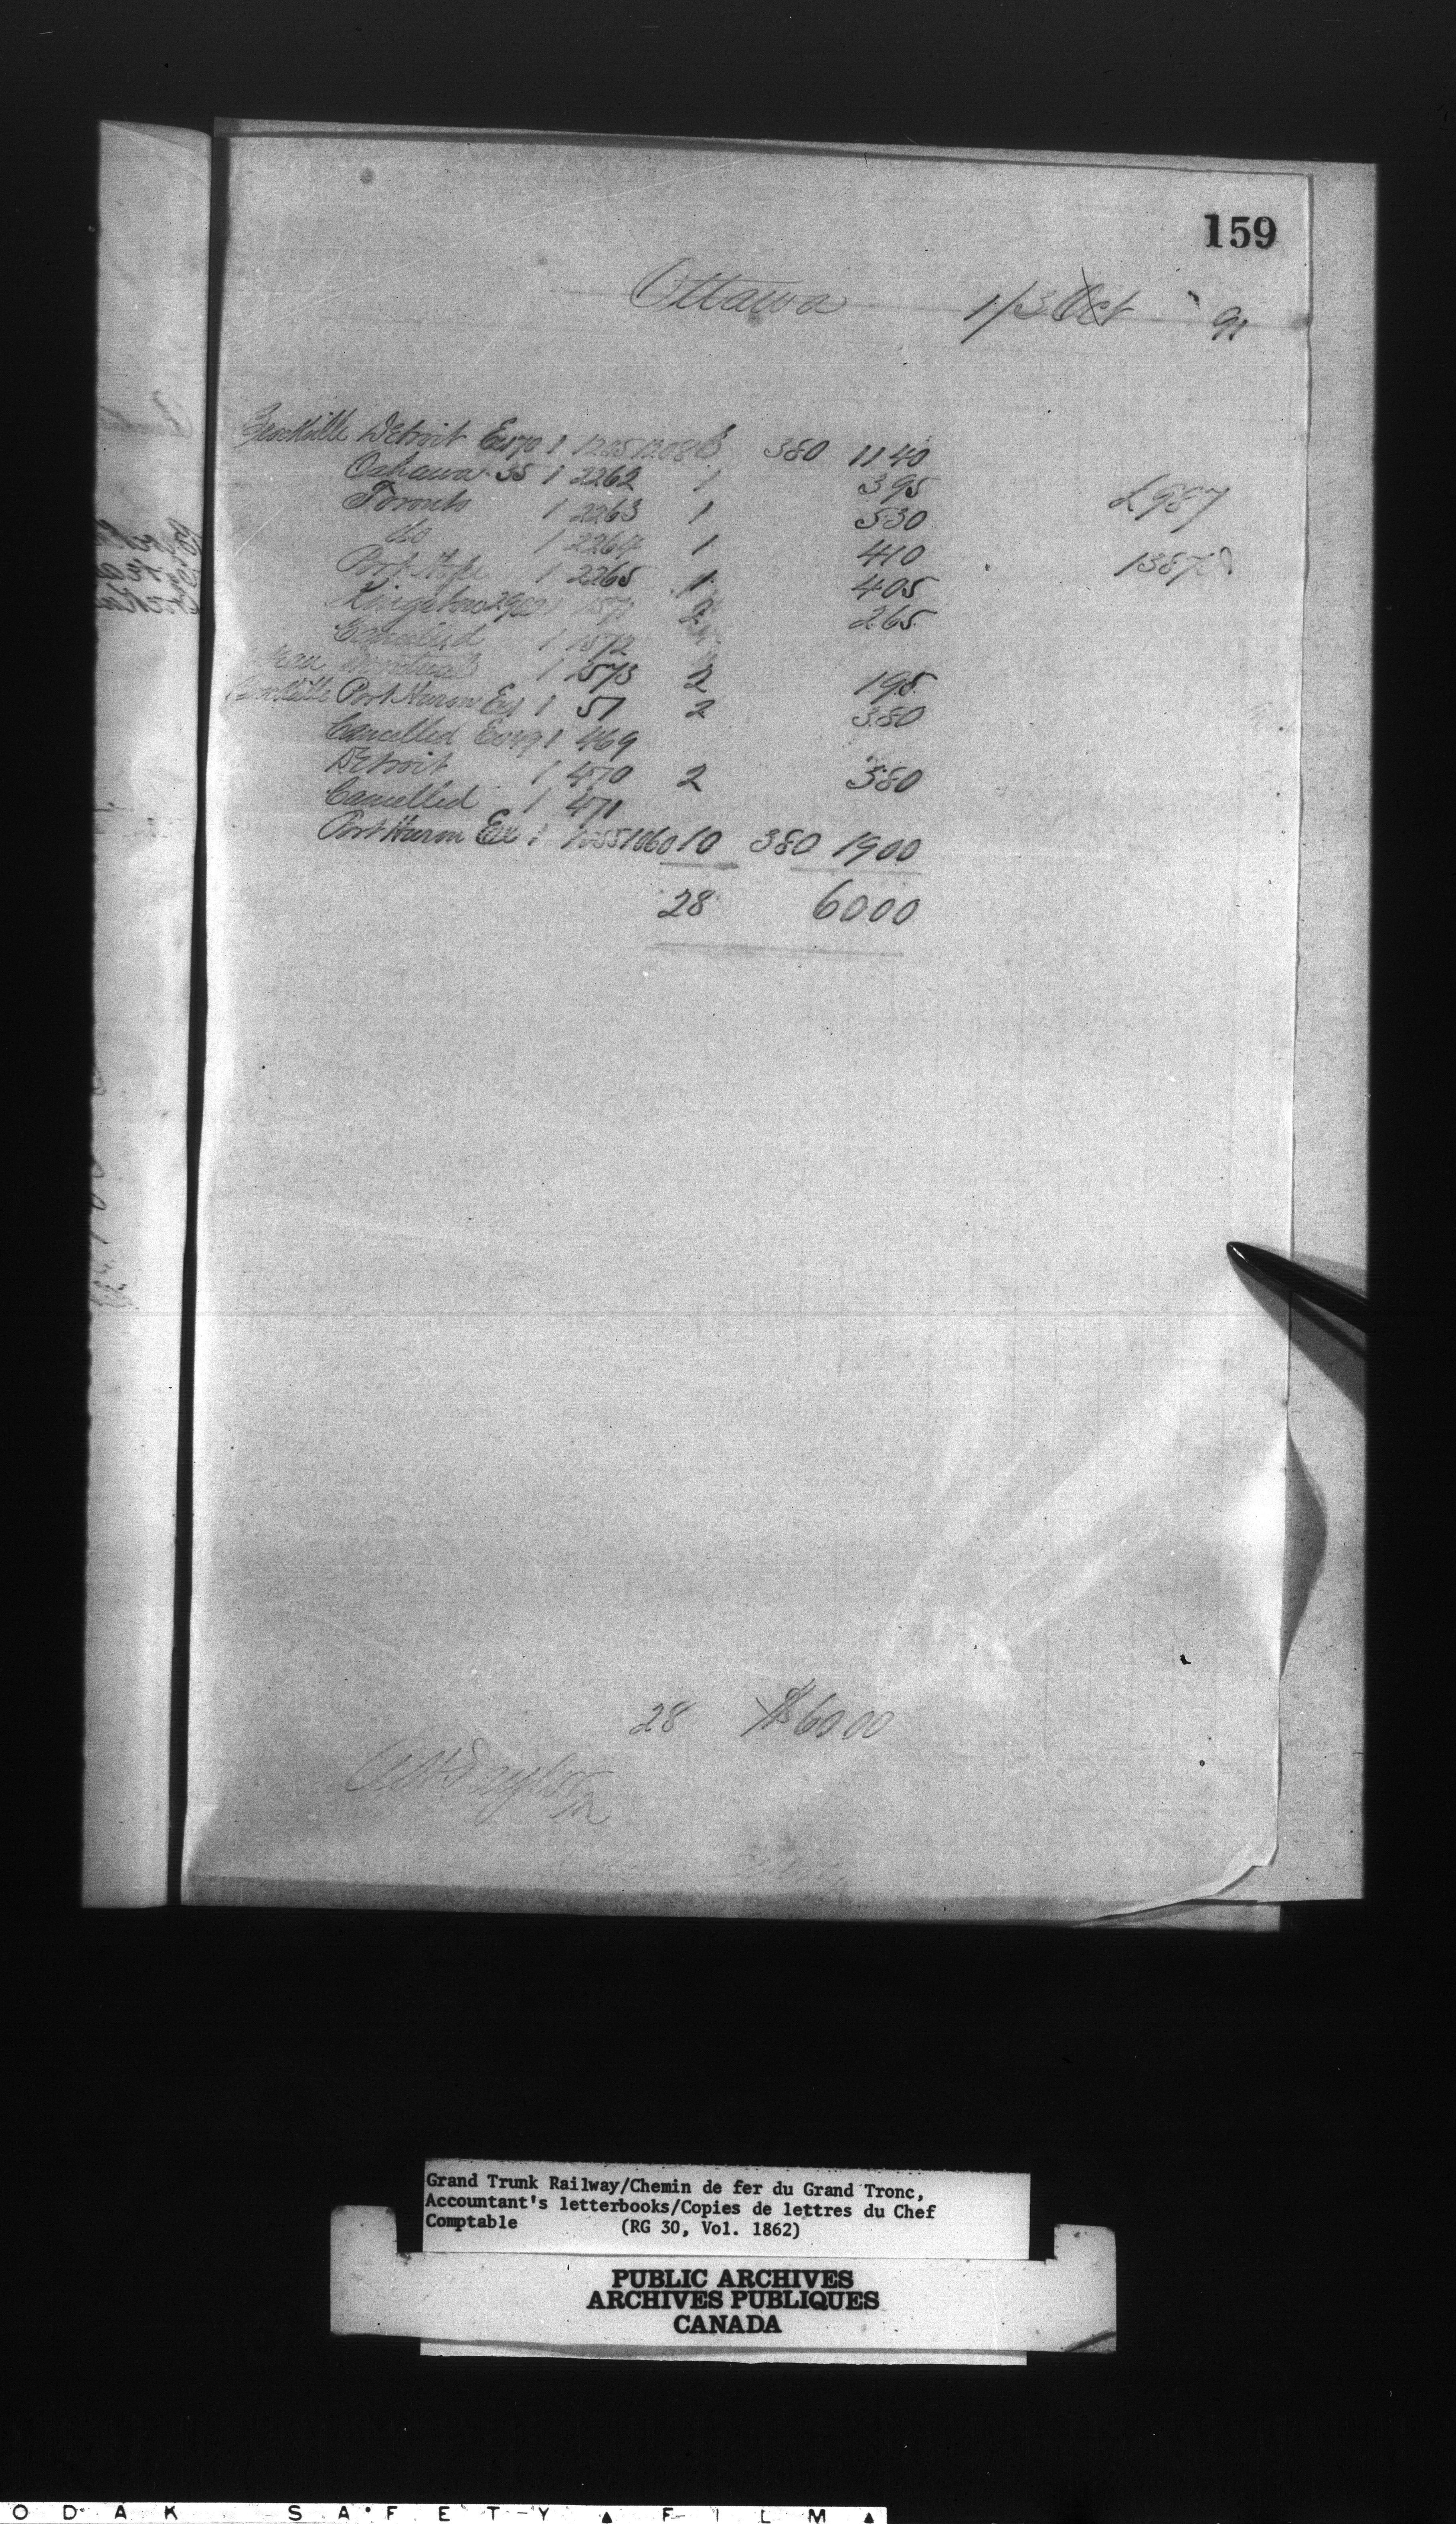 159
Ottawa 1/3 Oct 91
Brockville Detroit Ex 170 1 1205 1208 6 380 11 40
Oshawa 35 1 2262 1 3 95
Toronto 1 2263 1 5 30
do 1 2264 1 4 10
Port Hope 1 2265 1 4 05
Kingston 1 1571 2 2 65
Cancelled 1 1572
Montreal 1 1573 2 1 95
Brockville Port Huron Ex 1 51 2 3 80
Cancelled 1 469
Detroit 1 470 2 3 80
Cancelled 1 471
Port Huron Ex 1 1055 1060 10 380 19 00
28 60 00
2987
1387
28 $60 00
Grand Trunk Railway/Chemin de fer du Grand Tronc,
Accountant's letterbooks/Copies de lettres du Chef
Comptable (RG 30, Vol. 1862)
PUBLIC ARCHIVES
ARCHIVES PUBLIQUES
CANADA
ODAK SAFETY FILM